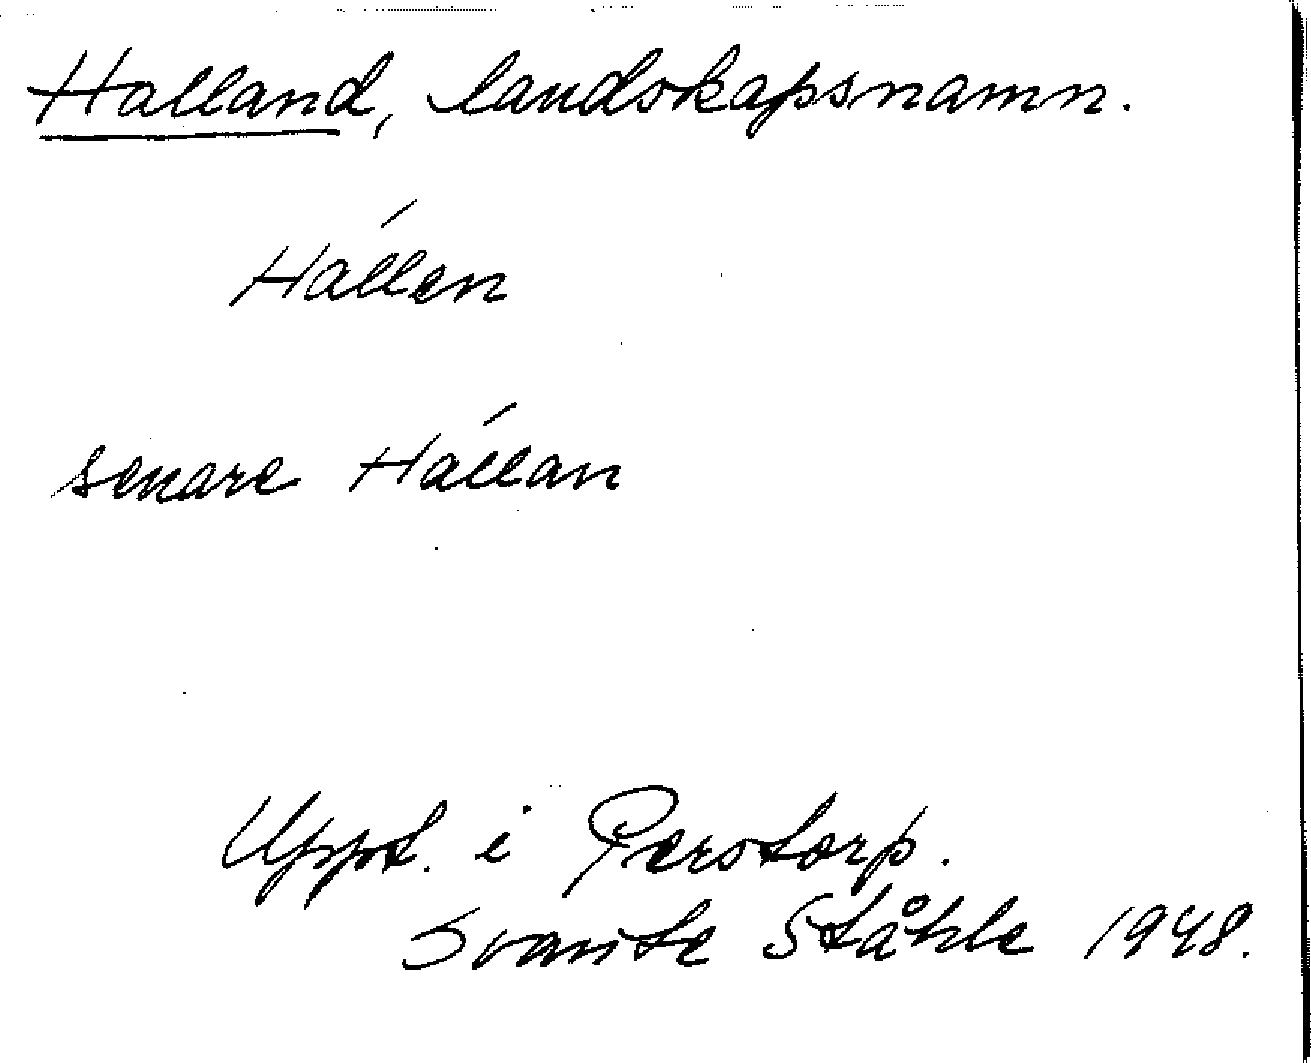 Halland, landskapsnamn.
Hállen
senare Hállan
Uppt. i Perstorp.
Svante Ståhle 1948.